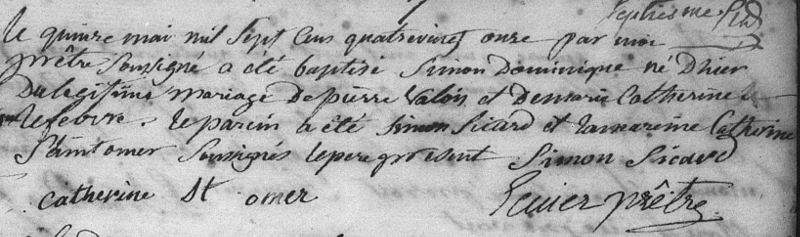 Le quinze mai mil sept cens quatrevingt onze par moi
prêtre soussigné a été baptisé Simon Dominique né D'hier
Du legitime mariage De pierre Valois et De marie Catherine
Lefebvre. le parein a été Simon Sicard et la mareine Catherine
Saintomer soussignés le pere present Simon Sicard
Catherine St omer
prêtre